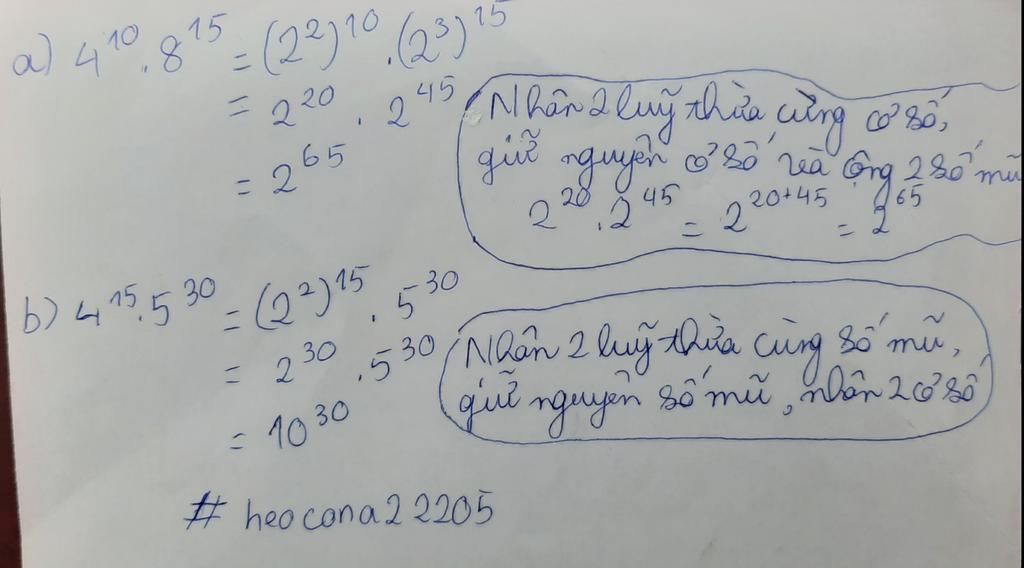 a) 4¹⁰.8¹⁵ = (2²)¹⁰.(2³)¹⁵
= 2²⁰.2⁴⁵
= 2⁶⁵
Nhân 2 luỹ thừa cùng cơ số,
giữ nguyên cơ số và cộng 2 số mũ
2²⁰.2⁴⁵ = 2²⁰⁺⁴⁵ = 2⁶⁵
b) 4¹⁵.5³⁰ = (2²)¹⁵.5³⁰
= 2³⁰.5³⁰
= 10³⁰
Nhân 2 luỹ thừa cùng số mũ,
giữ nguyên số mũ, nhân 2 cơ số
# heocona22205